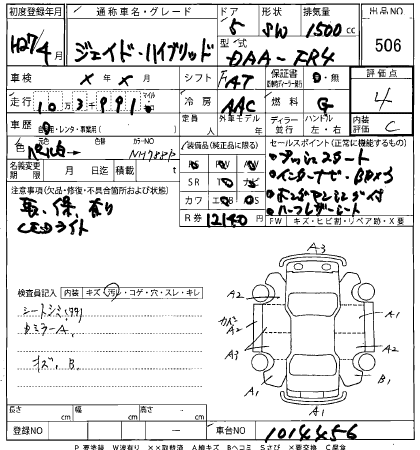 初度登録年月 通称車名・グレード ドア 形状 排気量 出品NO
H27/4月 ジェイド・ハイブリッド 5 SW 1500cc 506
型式 DAA-FR4
車検 × 年 × 月 シフト FAT 保証書 ・無 評価点
走行 10万3千991 マイル 冷房 AAC 燃料 G 4
車歴 自家・レンタ・事業用( ) 定員 人 外車モデル 年 ディーラー並行 ハンドル 左・右 内装 C
色 パール 色替 カラーNO NH788P 装備品(純正品に限る) セールスポイント(正常に機能するもの)
名義変更期限 月 日 積載 t SR TV ナビ
カワ エアB PS
R券 12140
・プッシュスタート
・インターナビ・Bカメラ
・ハーフレザーシート
FW キズ・ヒビ割・リペア跡・X要
注意事項(欠品・修復・不具合箇所および状態)
取、保、有り
LEDライト
検査員記入 内装 キズ・汚レ・コゲ・穴・スレ・キレ
シートシミ(99)
ミラーA、
キズ、B、
A3
A2
A2
A3
A1
A1
A2
B1
A1
長さ cm 幅 cm 高さ cm
登録NO 車台NO 1014456
P 要塗装 W波有り ××取替済 A線キズ Bヘコミ Sさび ×要交換 C腐食